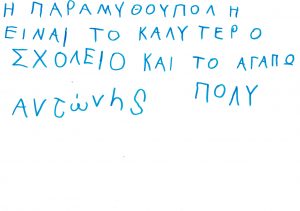 Η ΠΑΡΑΜΥΘΟΥΠΟΛΗ
ΕΙΝΑΙ ΤΟ ΚΑΛΥΤΕΡΟ
ΣΧΟΛΕΙΟ ΚΑΙ ΤΟ ΑΓΑΠΩ
ΠΟΛΥ
Αντώνης